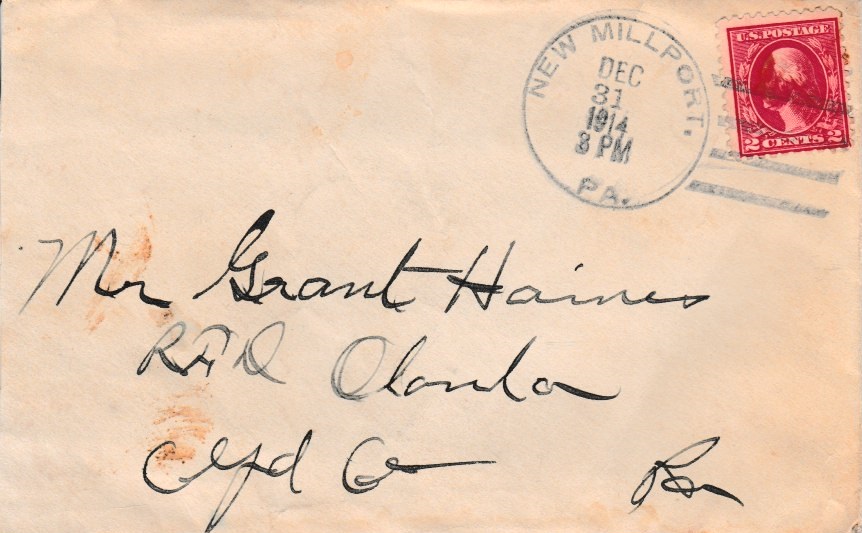 NEW MILLPORT.
DEC
31
1914
8 PM
PA.
U.S. POSTAGE
2 CENTS 2
Mr Grant Haines
RFD Olanta
Clfd Co Pa